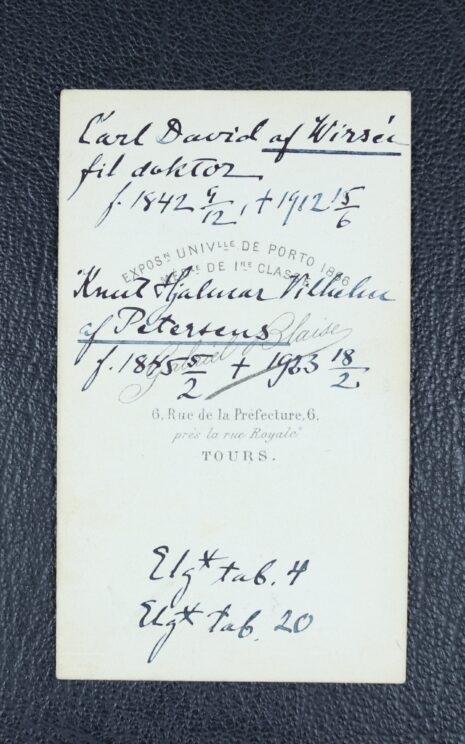 Carl David af Wirsén
fil doktor
f. 1842 9/12, † 1912 15/6
EXPOSN UNIVLLE DE PORTO 1866
DE 1RE CLASSE
Knut Hjalmar Vilhelm
af Petersens
Gabriel Blaise
f. 1845 5/2 † 1923 18/2
6, Rue de la Préfecture, 6.
près la rue Royale
TOURS.
Elgt tab. 4
Elgt tab. 20